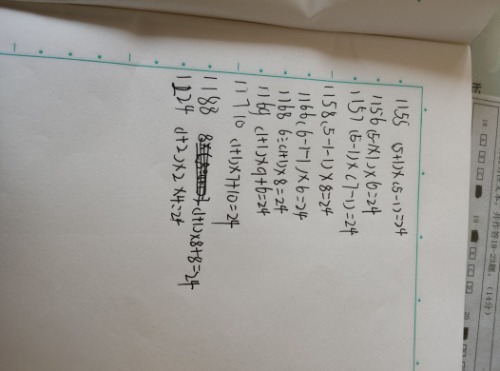 1155 (5+1)×(5-1)=24
1156 (5-1×1)×6=24
1157 (5-1)×(7-1)=24
1158 (5-1-1)×8=24
1166 (6-1-1)×6=24
1168 6÷(1+1)×8=24
1169 (1+1)×9+6=24
11710 (1+1)×7+10=24
1188 (1+1)×8+8=24
(1+2)×2×4=24
(14分)
18
19
20